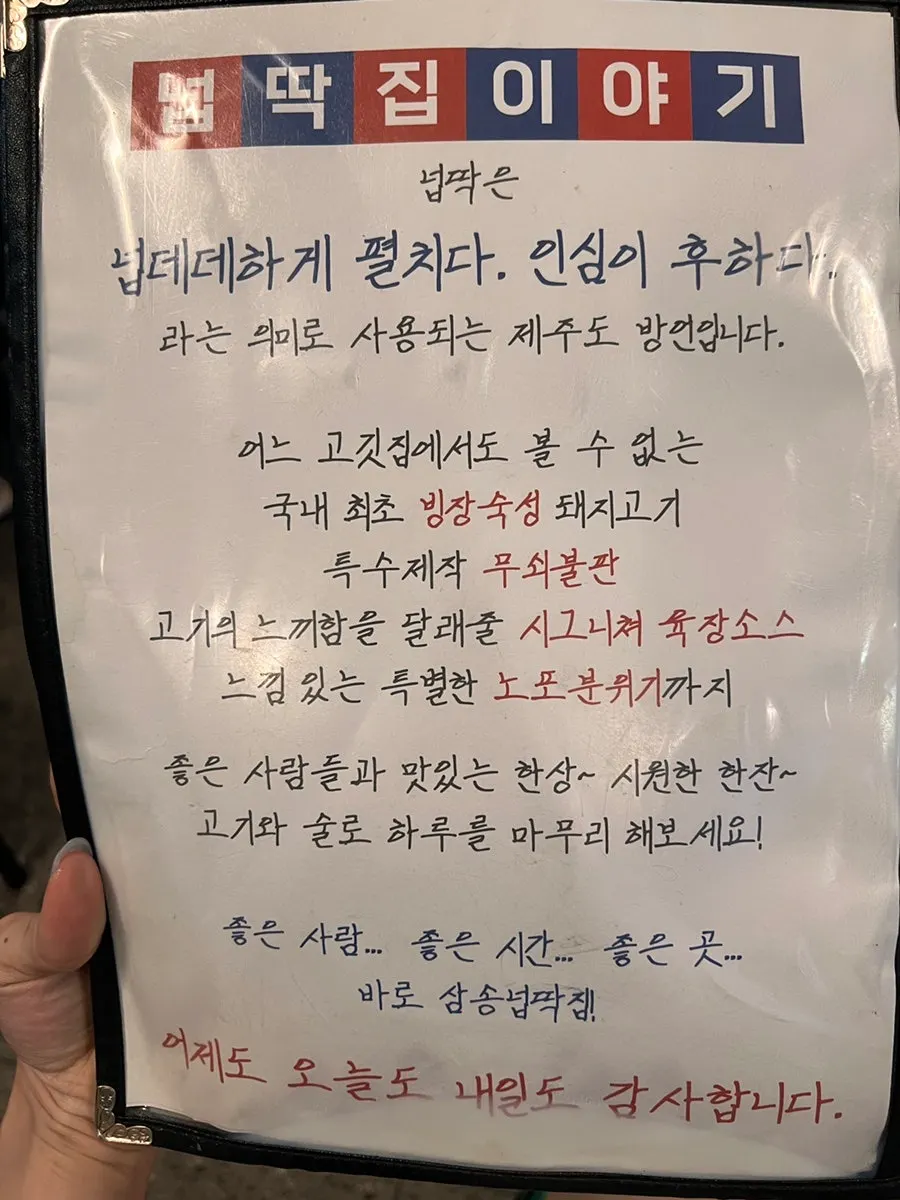 넙딱집이야기
넙딱은
넙데데하게 펼치다. 인심이 후하다.
라는 의미로 사용되는 제주도 방언입니다.
어느 고깃집에서도 볼 수 없는
국내 최초 빙장숙성 돼지고기
특수제작 무쇠불판
고기의 느끼함을 달래줄 시그니쳐 육장소스
느낌있는 특별한 노포분위기까지
좋은 사람들과 맛있는 한상~ 시원한 한잔~
고기와 술로 하루를 마무리 해보세요!
좋은 사람... 좋은 시간... 좋은 곳...
바로 삼송넙딱집!
어제도 오늘도 내일도 감사합니다.